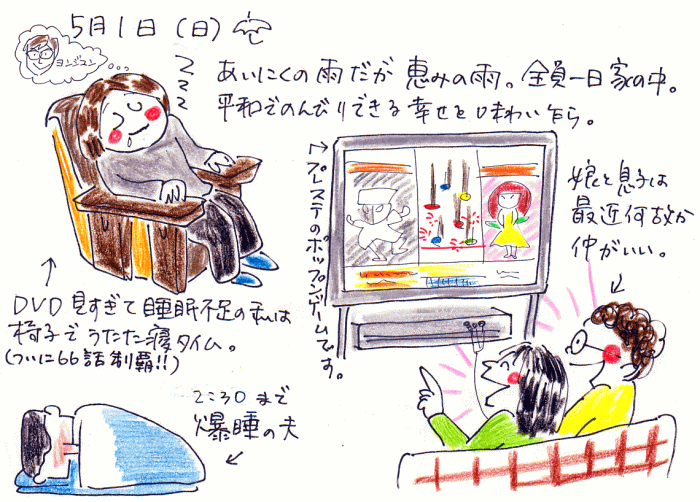 5月1日(日)
ヨンジュン
zzz
あいにくの雨だが 恵みの雨。全員一日家の中。
平和でのんびりできる幸せを味わい乍ら。
↑プレステのポップンゲームです。
娘と息子は
最近何故か
仲がいい。
DVD見すぎて睡眠不足の私は
椅子でうたた寝タイム。
(ついに66話制覇!!)
ところかまわず
爆睡の夫